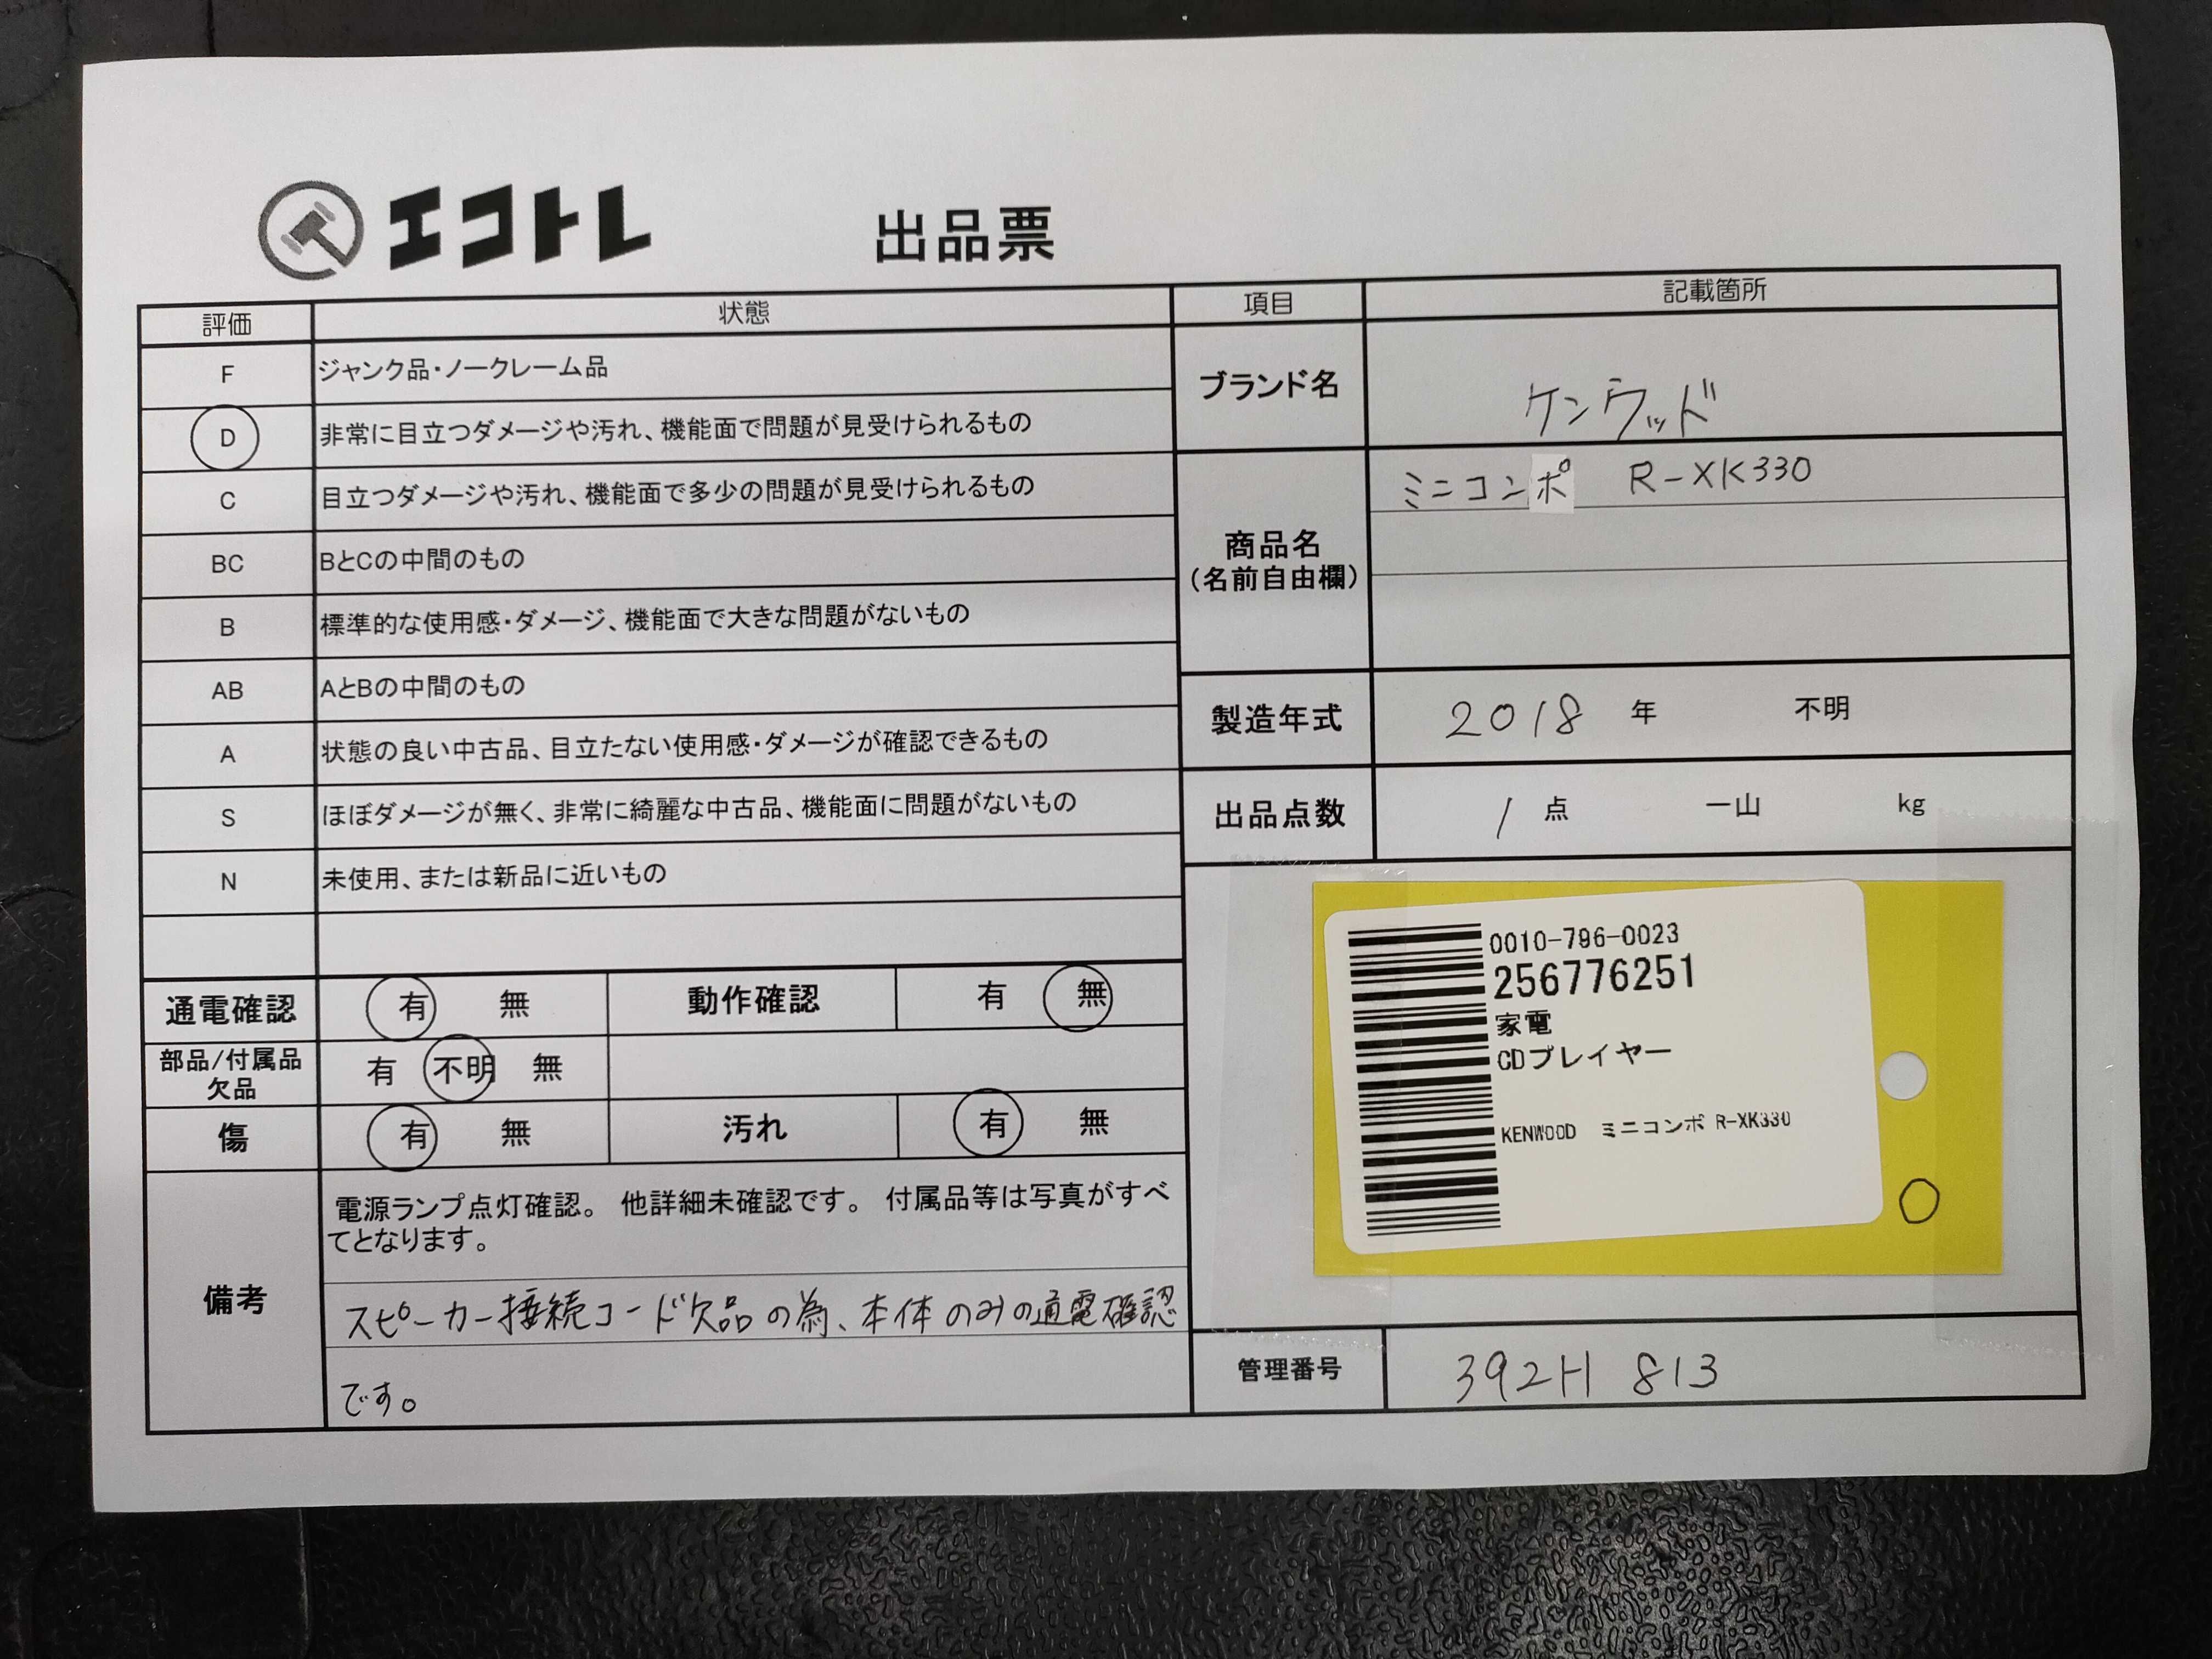 エコトレ
出品票
評価 状態
F ジャンク品・ノークレーム品
D 非常に目立つダメージや汚れ、機能面で問題が見受けられるもの
C 目立つダメージや汚れ、機能面で多少の問題が見受けられるもの
BC BとCの中間のもの
B 標準的な使用感・ダメージ、機能面で大きな問題がないもの
AB AとBの中間のもの
A 状態の良い中古品、目立たない使用感・ダメージが確認できるもの
S ほぼダメージが無く、非常に綺麗な中古品、機能面に問題がないもの
N 未使用、または新品に近いもの
通電確認 有 無 動作確認 有 無
部品/付属品
欠品
有 不明 無
傷 有 無 汚れ 有 無
備考
電源ランプ点灯確認。 他詳細未確認です。 付属品等は写真がすべ
てとなります。
スピーカー接続コード欠品の為、本体のみの通電確認
です。
項目 記載箇所
ブランド名 ケンウッド
商品名
(名前自由欄)
ミニコンポ R-XK330
製造年式 2018 年 不明
出品点数 1 点 一山 kg
0010-796-0023
256776251
家電
CDプレイヤー
KENWOOD ミニコンポ R-XK330
管理番号 392H 813